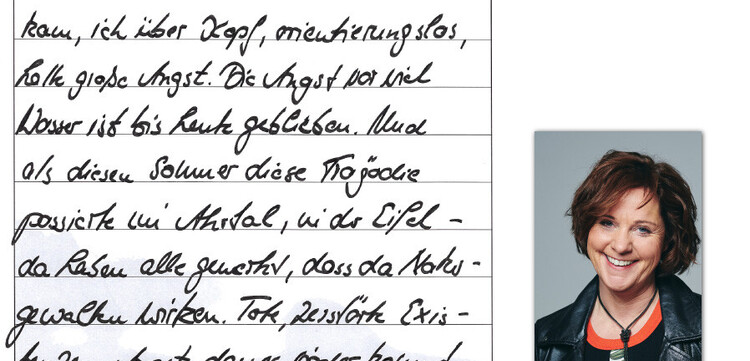 kam, ich über Kopf, orientierungslos,
hatte große Angst. Die Angst vor viel
Wasser ist bis heute geblieben. Und
als diesen Sommer diese Tragödie
passierte im Ahrtal, in der Eifel –
da haben alle gemerkt, dass da Natur-
gewalten wirken. Tote, zerstörte Exis-